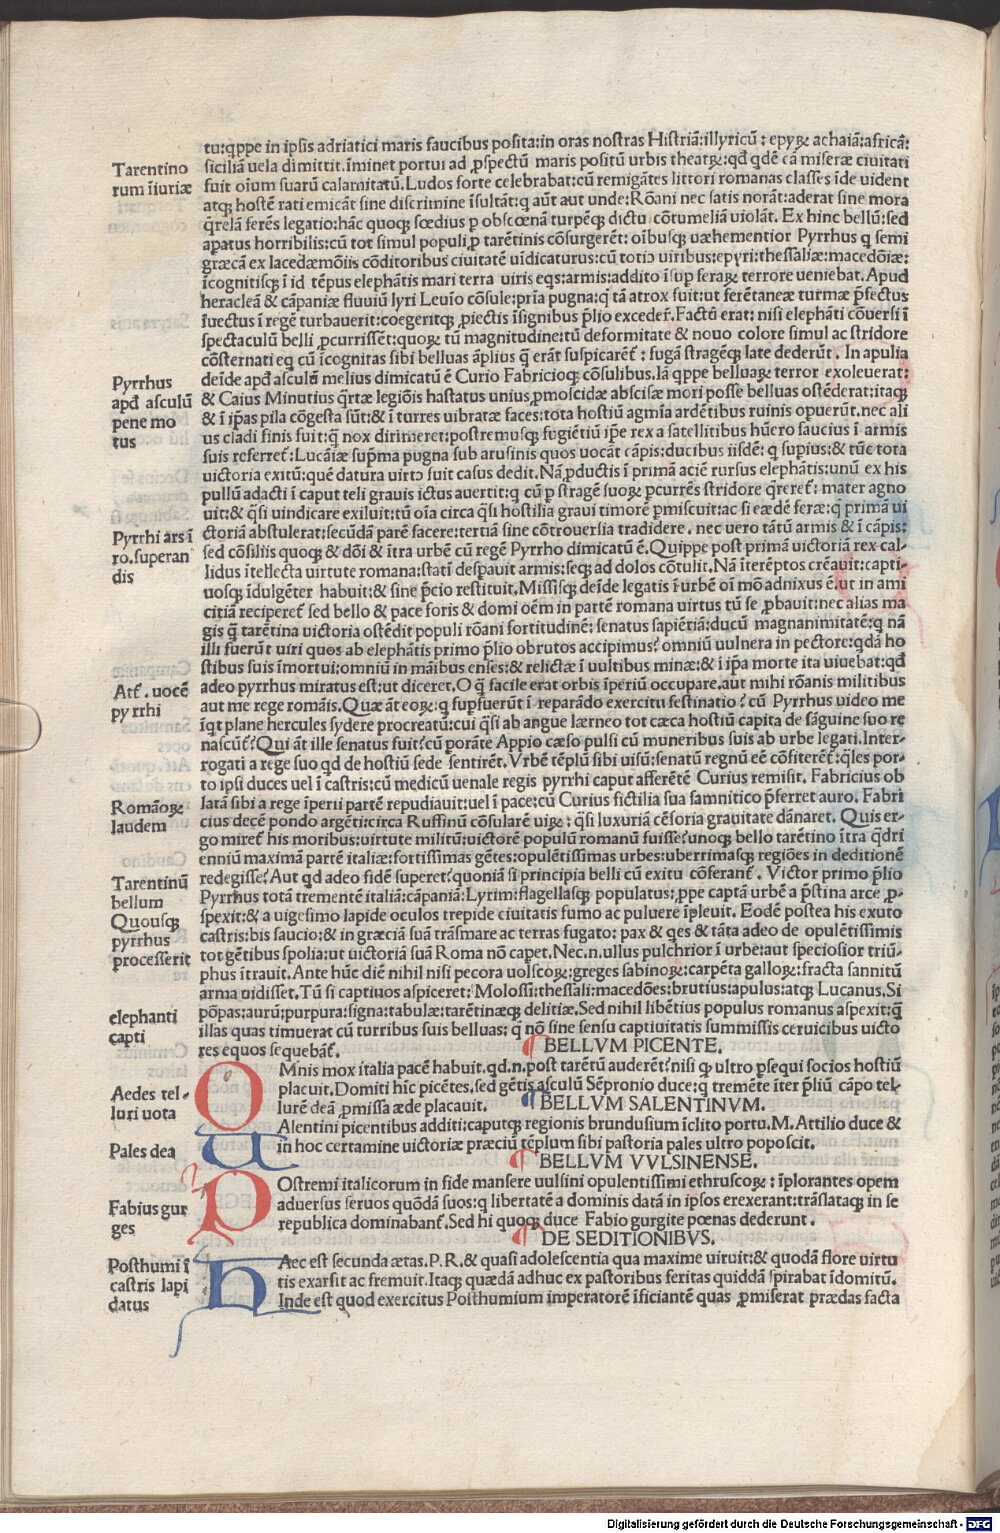 tu:q̄ppe in ip̄sis adriatici maris faucibus posita:in oras nostras Histriā:illyricū: epyꝝ achaiā:africā:
siciliā uela dimittit.īminet portui ad ꝓspectū maris positū urbis theatꝝ:qđ qdē cā miseræ ciuitati
fuit oīum suarū calamitatū.Ludos forte celebrabat:cū remigātes littori romanas classes īde uident
atq; hostē rati emicāt sine discrimine īsultāt:q aūt aut unde:Rōani nec satis norāt:aderat sine mora
q̄relā ferēs legatio:hāc quoq; fœdius ꝑ obscœnā turpēq; dictu cōtumeliā uiolāt. Ex hinc bellū:sed
apatus horribilis:cū tot simul populi ꝓ tarētinis cōsurgerēt: oībusq; uæhementior Pyrrhus q semi
græcā ex lacedæmōiis cōditoribus ciuitatē uīdicaturus:cū totis uiribus:epyri:thessaliæ:macedōiæ:
īcognitisq; ī id tēpus elephātis mari terra uiris eqs:armis:addito īsup feraꝝ terrore ueniebat. Apud
heracleā & cāpaniæ fluuiū lyri Leuīo cōsule:prīa pugna:q̄ tā atrox fuit:ut ferētaneæ turmæ p̄fectus
īuectus ī regē turbauerit:coegeritq; ꝓiectis īsignibus p̄lio exceder̄.Factū erat: nisi elephāti cōuersi ī
spectaculū belli ꝓcurrissēt:quoꝝ tū magnitudine:tū deformitate & nouo colore simul ac stridore
cōsternati eq cū īcognitas sibi belluas āplius q̄ erāt suspicarēt : fugā stragēq; late dederūt . In apulia
deīde apđ asculū melius dimicatū ē Curio Fabricioq; cōsulibus.Iā q̄ppe belluaꝝ terror exoleuerat:
& Caius Minutius q̄rtæ legiōis hastatus unius ꝓmoscidæ abscisæ mori posse belluas ostēderat:itaq;
& ī ip̄as pila cōgesta sūt:& ī turres uibratæ faces:tota hostiū agmīa ardētibus ruinis opuerūt.nec ali
us cladi finis fuit:q̄ nox dirimeret:postremusq; fugiētiū ip̄e rex a satellitibus hūero saucius ī armis
suis referret̄:Lucāiæ sup̄ma pugna sub arusinis quos uocāt cāpis:ducibus iisdē: q supius:& tūc tota
uictoria exitū:quē datura uirtꝰ fuit casus dedit.Nā ꝓductis ī primā aciē rursus elephātis:unū ex his
pullū adacti ī caput teli grauis ictus auertit:q cū ꝑ stragē suoꝝ ꝑcurrēs stridore q̄reret̄: mater agno
uit:& q̄si uindicare exiluit:tū oīa circa q̄si hostilia graui timorē ꝑmiscuit:ac si eædē feræ:q primā ui
ctoriā abstulerat:secūdā parē facere:tertiā sine cōtrouersia tradidere. nec uero tātū armis & ī cāpis:
sed cōsiliis quoq; & dōi & ītra urbē cū regē Pyrrho dimicatū ē.Quippe post primā uictoriā rex cal-
lidus ītellecta uirtute romana:statī despauit armis:seq; ad dolos cōtulit.Nā īterēptos crēauit:capti-
uosq; īdulgēter habuit:& sine p̄cio restituit.Missisq; deīde legatis ī urbē oī mō adnixus ē.ut in ami
citiā reciperet̄ sed bello & pace foris & domi oēm in partē romana uirtus tū se ꝓbauit:nec alias ma
gis q̄ tarētina uictoria ostēdit populi rōani fortitudinē: senatus sapiētiā:ducū magnanimitatē:q nā
illi fuerūt uiri quos ab elephātis primo p̄lio obrutos accipimus? omniū uulnera in pectore:qdā ho
stibus suis īmortui:omniū in māibus enses:& relictæ ī uultibus minæ:& ī ip̄a morte ita uiuebat:qđ
adeo pyrrhus miratus est:ut diceret.O q̄ facile erat orbis īperiū occupare.aut mihi rōanis militibus
aut me rege romāis.Quæ āt eoꝝ:q supfuerūt ī reparādo exercitu festinatio? cū Pyrrhus uideo me
īqt plane hercules sydere procreatū:cui q̄si ab angue lærneo tot cæca hostiū capita de sāguine suo re
nascūt̄?Qui āt ille senatus fuit?cū porāte Appio cæso pulsi cū muneribus suis ab urbe legati.Inter-
rogati a rege suo qd de hostiū sede sentirēt.Vrbē tēplū sibi uisū:senatū regnū eē cōfiterēt̄:q̄les por-
to ipsi duces uel ī castris:cū medicū uenale regis pyrrhi caput afferētē Curius remisit. Fabricius ob
latā sibi a rege īperii partē repudiauit:uel ī pace:cū Curius fictilia sua samnitico p̄ferret auro. Fabri
cius decē pondo argēti:circa Ruffinū cōsularē uiꝝ: q̄si luxuriā cēsoria grauitate dānaret. Quis er-
go miret̄ his moribus:uirtute militū:uictorē populū romanū fuisse?unoq; bello tarētino ītra q̄dri
enniū maximā partē italiæ:fortissimas gētes:opulētissimas urbes:uberrimasq; regiōes in deditionē
redegisse?Aut qd adeo fidē superet?quoniā si principia belli cū exitu cōferant̄. Victor primo p̄lio
Pyrrhus totā trementē italiā:cāpaniā:Lyrim:flagellasq; populatus:ꝓpe captā urbē a p̄stina arce ꝓ-
spexit:& a uigesimo lapide oculos trepide ciuitatis fumo ac puluere īpleuit. Eodē postea his exuto
castris:bis saucio:& in græciā suā trāsmare ac terras fugato: pax & qes & tāta adeo de opulētissimis
tot gētibus spolia:ut uictoriā suā Roma nō capet.Nec.n.ullus pulchrior ī urbe:aut speciosior triū-
phus ītrauit.Ante hūc diē nihil nisi pecora uolscoꝝ:greges sabinoꝝ:carpēta galloꝝ:fracta sannitū
arma uidisset.Tū si captiuos aspiceret: Molossi:thessali:macedōes:brutius:apulus:atq; Lucanus.Si
pōpas:aurū:purpura:signa:tabulæ:tarētinæq; delitiæ.Sed nihil libētius populus romanus aspexit:q̄
illas quas timuerat cū turribus suis belluas: q̄ nō sine sensu captiuitatis summissis ceruicibus uicto
res equos sequebāt̄.
BELLVM PICENTE.
OMnis mox italia pacē habuit.qd.n.post tarētū auderēt?nisi q; ultro ꝑsequi socios hostiū
placuit.Domiti hīc picētes.sed gētis asculū Sēpronio duce:q tremēte īter p̄liū cāpo tel-
lurē deā ꝓmissa æde placauit.
BELLVM SALENTINVM.
Alentini picentibus additi:caputq; regionis brundusium īclito portu.M.Attilio duce &
in hoc certamine uictoriæ præciū tēplum sibi pastoria pales ultro poposcit.
BELLVM VVLSINENSE.
POstremi italicorum in fide mansere uulsini opulentissimi ethruscoꝝ: īplorantes opem
aduersus seruos quōdā suos:q libertatē a dominis datā in ipsos erexerant:trāslataq; in se
republica dominabant̄.Sed hi quoq; duce Fabio gurgite pœnas dederunt.
DE SEDITIONIBVS.
HAec est secunda ætas.P.R.& quasi adolescentia qua maxime uiruit:& quodā flore uirtu
tis exarsit ac fremuit.Itaq; quædā adhuc ex pastoribus feritas quiddā spirabat īdomitū.
Inde est quod exercitus Posthumium imperatorē īficiantē quas ꝓmiserat prædas facta
Tarentino
rum īiuriæ
Pyrrhus
apđ asculū
pene mo
tus
Pyrrhi ars ī
ro.superan
dis
Att̄. uocē
pyrrhi
Romāoꝝ
laudem
Tarentinū
bellum
Quousq;
pyrrhus
processerit
elephanti
capti
Aedes tel-
luri uota
Pales dea
Fabius gur
ges
Posthumi ī
castris lapi
datus
Digitalisierung gefördert durch die Deutsche Forschungsgemeinschaft - DFG